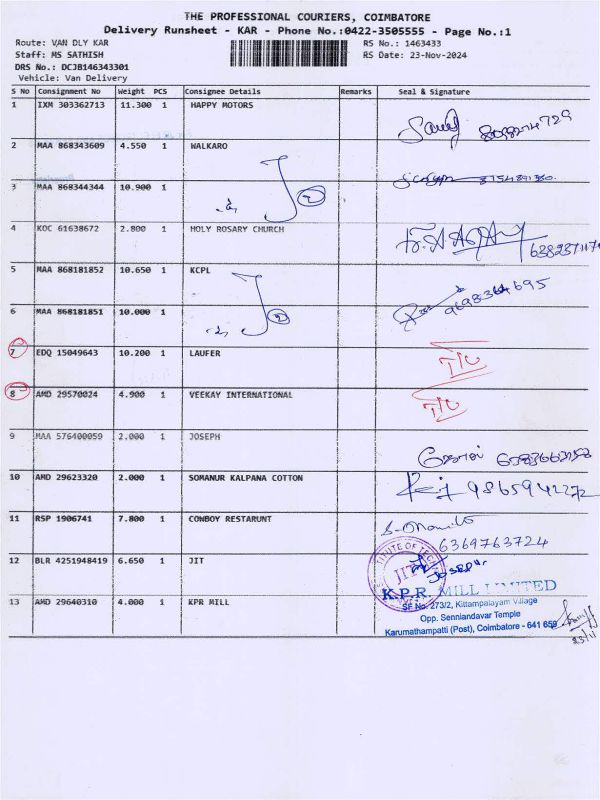 THE PROFESSIONAL COURIERS, COIMBATORE
Delivery Runsheet - KAR - Phone No.:0422-3505555 - Page No.:1
Route: VAN DLY KAR
Staff: MS SATHISH
DRS No.: DCJB146343301
Vehicle: Van Delivery
RS No.: 1463433
RS Date: 23-Nov-2024
S No Consignment No Weight PCS Consignee Details Remarks Seal & Signature
1 IXM 303362713 11.300 1 HAPPY MOTORS
2 MAA 868343609 4.550 1 WALKARO
3 MAA 868344344 10.900 1
4 KOC 61638672 2.800 1 HOLY ROSARY CHURCH
5 MAA 868181852 10.650 1 KCPL
6 MAA 868181851 10.000 1
7 EDQ 15049643 10.200 1 LAUFER
8 AMD 29570024 4.900 1 VEEKAY INTERNATIONAL
9 MAA 576400059 2.000 1 JOSEPH
10 AMD 29623320 2.000 1 SOMANUR KALPANA COTTON 9865942272
11 RSP 1906741 7.800 1 COWBOY RESTARUNT
6369763724
12 BLR 4251948419 6.650 1 JIT JIT
13 AMD 29640310 4.000 1 KPR MILL
K.P.R. MILL LIMITED
SF No. 273/2, Kittampalayam Village
Opp. Senniandavar Temple
Karumathampatti (Post), Coimbatore - 641 659
23/11